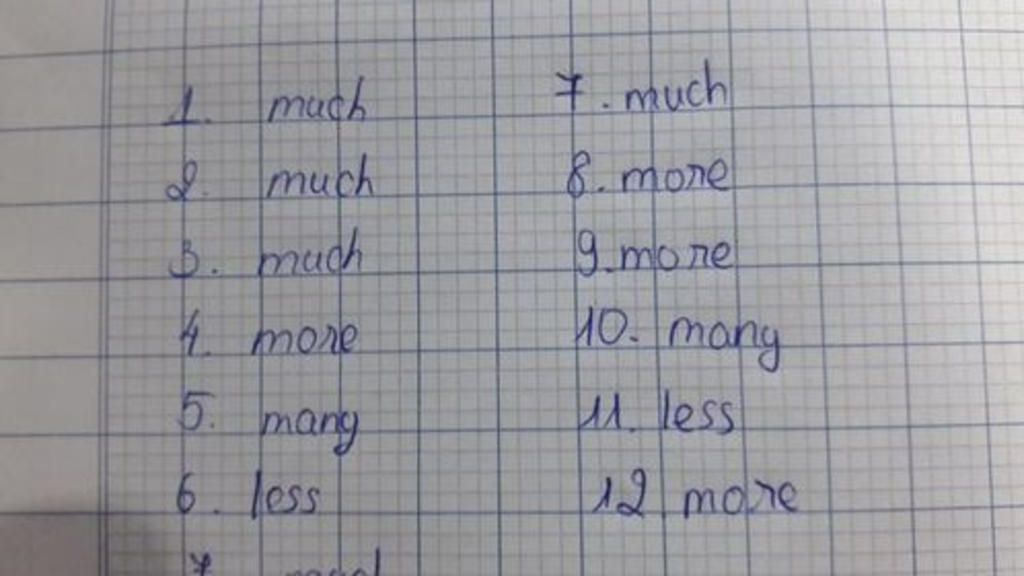 1. much
2. much
3. much
4. more
5. many
6. less
7
7. much
8. more
9. more
10. many
11. less
12 more